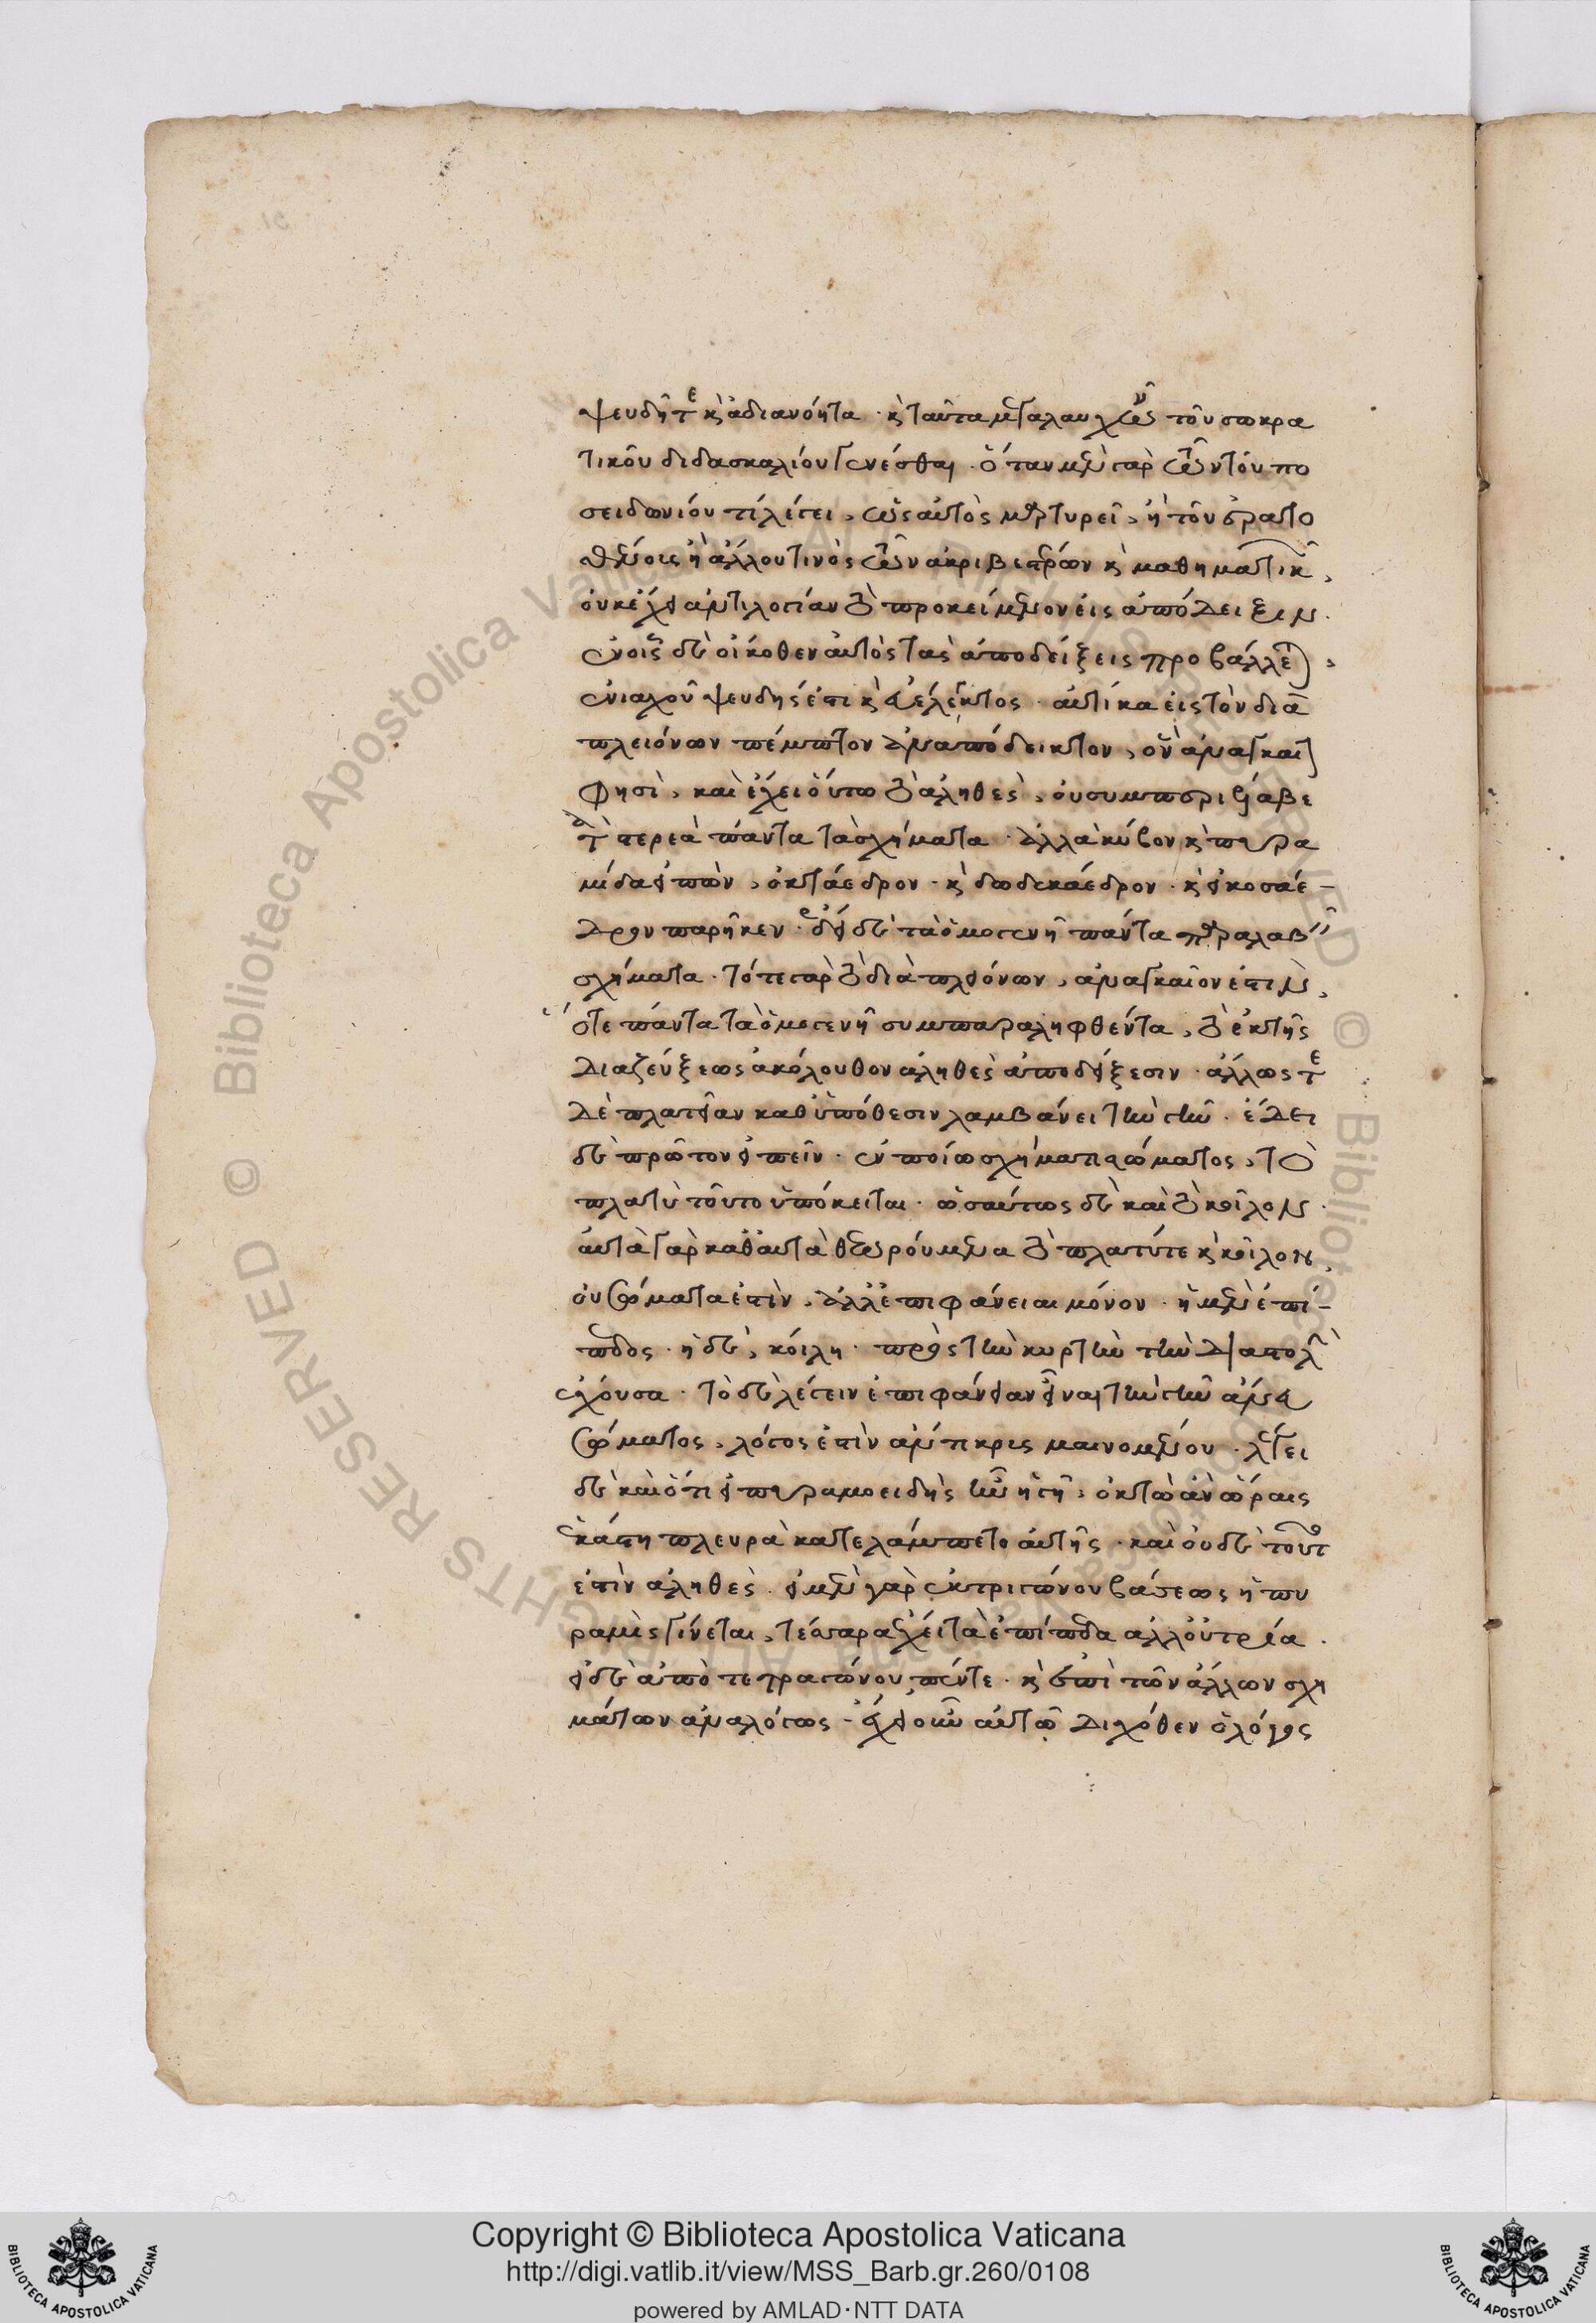 ψευδῆ τε κ̀ ἀδιανόητα · κ̀ ταῦτα μεγαλαυχῶν ἐκ τοῦ σωκρα
τικοῦ διδασκαλίου γενέσθαι · ὅταν μὲν γὰρ ἐκ τῶν τοῦ πο
σειδωνίου τι λέγει, ὡς αὐτὸς μαρτυρεῖ, ἢ τοῦ ἐρατο
σθένους ἢ ἄλλου τινὸς τῶν ἀκριβεστέρων κ̀ μαθηματικῶν,
οὐκ ἔχει ἀντιλογίαν τὸ προκείμενον εἰς ἀπόδειξιν.
ἐν οἷς δὲ οἴκοθεν αὐτὸς τὰς ἀποδείξεις προβάλλεται,
ἐνιαχοῦ ψευδής ἐστι κ̀ εὐέλεγκτος · αὐτίκα εἰς τὸν διὰ
πλειόνων πέμπτον ἀναπόδεικτον, ὃν ἀναγκαῖ
φησὶ, καὶ ἔχει οὕτω τὸ ἀληθὲς, οὐ συμπεριέλαβε
τὰ στερεὰ πάντα τὰ σχήματα · ἀλλὰ κύβον κ̀ πυρα
μίδα εἰπὼν, ὀκτάεδρον · κ̀ δωδεκάεδρον · κ̀ εἰκοσάε–
δρον παρῆκεν · ἔδει δὲ τὰ ὁμογενῆ πάντα παραλαβεῖν
σχήματα · τότε γὰρ τὸ διὰ πλειόνων, ἀναγκαῖον ἐστιν,
ὅτε πάντα τὰ ὁμογενῆ συμπαραληφθέντα, τὸ ἐκ τῆς
διαζεύξεως ἀκόλουθον ἀληθὲς ἀποδείξεσιν · ἄλλως τε
δὲ πλατεῖαν καθ᾽ ὑπόθεσιν λαμβάνει τὴν γῆν · ἔδει
δὲ πρῶτον εἰπεῖν · ἐν ποίω σχήματι σώματος, τὸ
πλατὺ τοῦτο ὑπόκειται · ὡσαύτως δὲ καὶ τὸ κοῖλον ·
αὐτὰ γὰρ καθ᾽ αὑτὰ θεωρούμενα τὸ πλατύ τε κ̀ κοῖλον,
οὐ σώματα ἐστὶν, ἀλλ᾽ ἐπιφάνειαι μόνον · ἡ μὲν ἐπί–
πεδος · ἡ δὲ, κοίλη · πρὸς τὴν κυρτὴν τὴν διαστολὴν
ἔχουσα · τὸ δὲ λέγειν ἐπιφάνειαν εἶναι τὴν γῆν ἄνευ
σώματος, λόγος ἐστὶν ἄντικρις μαινομένου · λέγει
δὲ καὶ ὅτι εἰ πυραμοειδὴς ἦν ἡ γῆ, ὀκτὼ ἂν ὥραις
ἑκάστη πλευρὰ κατελάμπετο αὐτῆς · καὶ οὐδὲ τοῦτο
ἐστὶν ἀληθὲς · εἰ μὲν γὰρ ἐκ τριγώνου βάσεως ἡ πυ
ραμὶς γίνεται, τέσσαρα ἔχει τὰ ἐπίπεδα ἀλλ᾽ οὐ τρία ·
εἰ δὲ ἀπὸ τετραγώνου πέντε · κ̀ ἐπὶ τῶν ἄλλων σχη
μάτων ἀναλόγως – ἔχει οὖν αὐτῷ διχόθεν ὁ λόγος
Copyright © Biblioteca Apostolica Vaticana
http://digi.vatlib.it/view/MSS_Barb.gr.260/0108
powered by AMLAD·NTT DATA